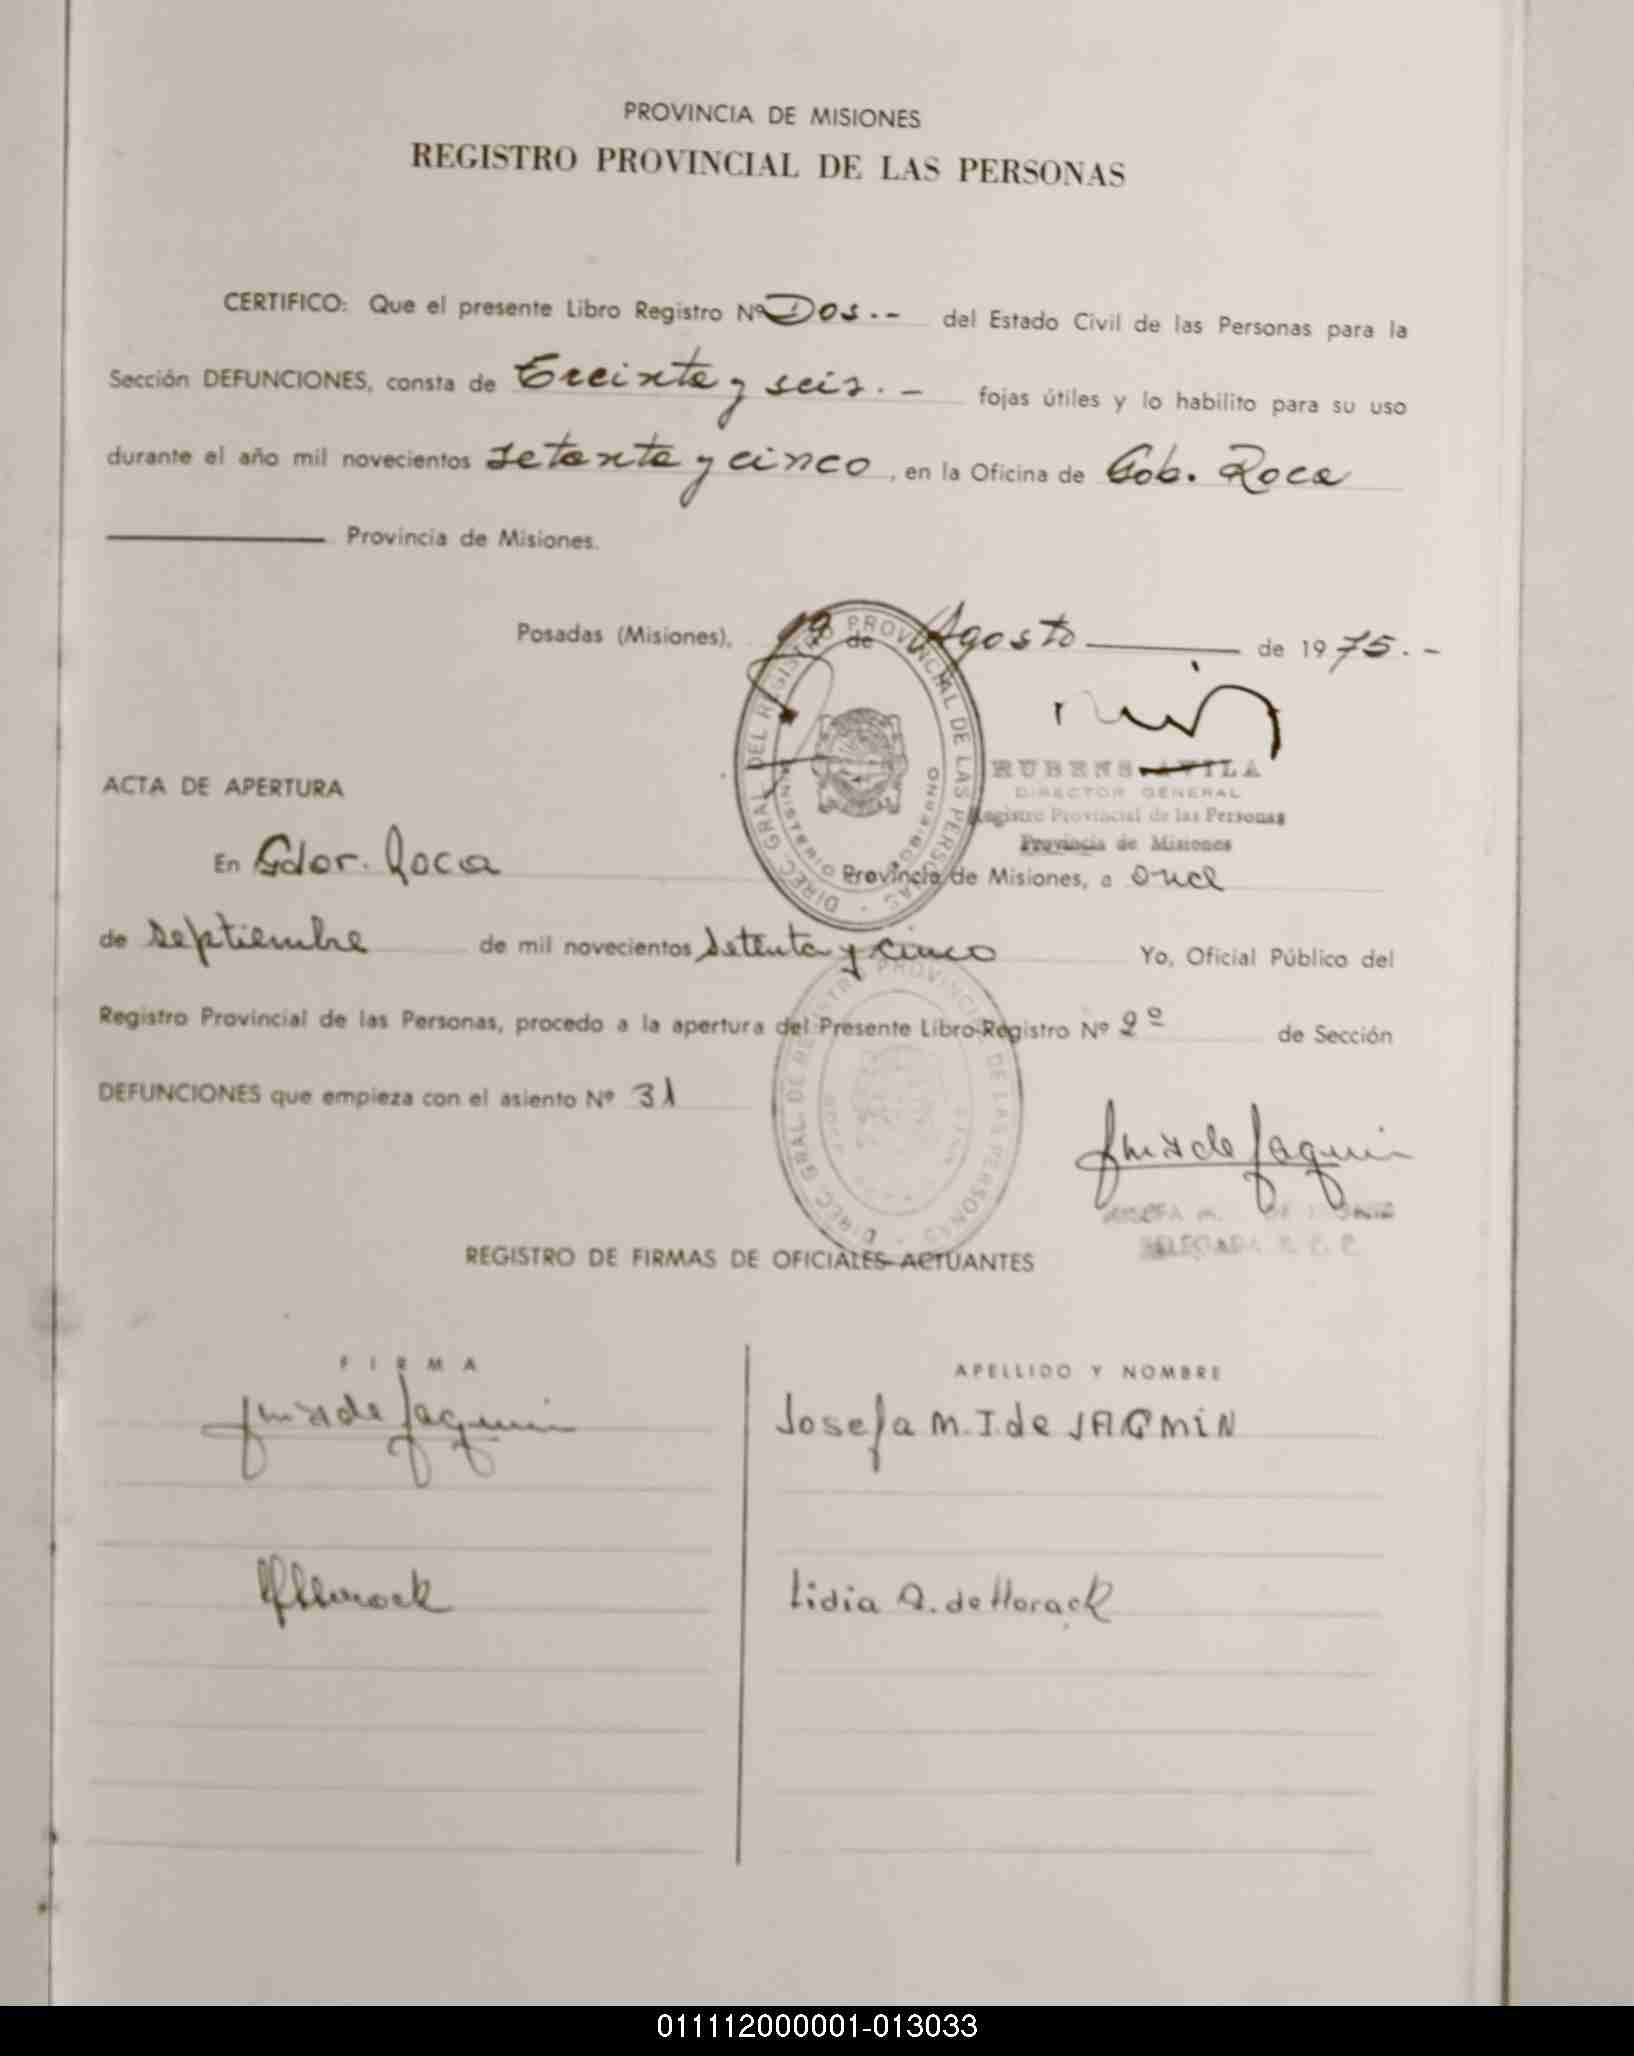 PROVINCIA DE MISIONES
REGISTRO PROVINCIAL DE LAS PERSONAS
CERTIFICO: Que el presente Libro Registro Nº Dos.-- del Estado Civil de las Personas para la
Sección DEFUNCIONES, consta de Treinta y seis.- fojas útiles y lo habilito para su uso
durante el año mil novecientos setenta y cinco, en la Oficina de Gob. Roca
Provincia de Misiones.
Posadas (Misiones), 19 de Agosto de 1975.-
RUBENS AVILA
DIRECTOR GENERAL
Registro Provincial de las Personas
Provincia de Misiones
DIREC. GRAL. DEL REGISTRO PROVINCIAL DE LAS PERSONAS
MINISTERIO DE GOBIERNO
ACTA DE APERTURA
En Gdor. Roca Provincia de Misiones, a once
de septiembre de mil novecientos setenta y cinco Yo, Oficial Público del
Registro Provincial de las Personas, procedo a la apertura del Presente Libro-Registro Nº 2º de Sección
DEFUNCIONES que empieza con el asiento Nº 31
DIREC. GRAL. DE REGISTRO PROVINCIAL DE LAS PERSONAS
JOSEFA M. DE
DELEGADA R. C. P.
REGISTRO DE FIRMAS DE OFICIALES ACTUANTES
FIRMA
APELLIDO Y NOMBRE
Josefa M. I. de JACMIN
Horack
Lidia A. de Horack
011112000001-013033